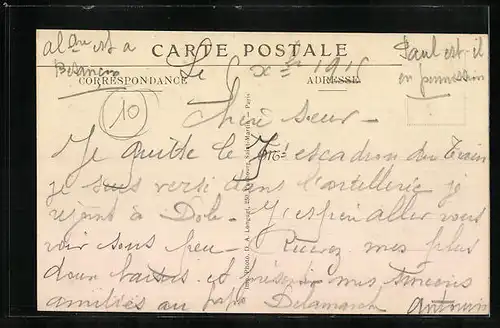 est a
CARTE POSTALE
Paul est-il
Besançon
Le 6 Xbre 1915
en permission
CORRESPONDANCE
ADRESSE
10
Chère sœur -
Je quitte le escadron du Train
je suis versé dans l'artillerie je
rejoins à Dole - J'espère aller vous
voir sous peu - Recevez mes plus
doux baisers et mes sincères
amitiés au papa Delamarche
Imp. Photo. D. A. Longuet, 250, Faubourg Saint-Martin - Paris